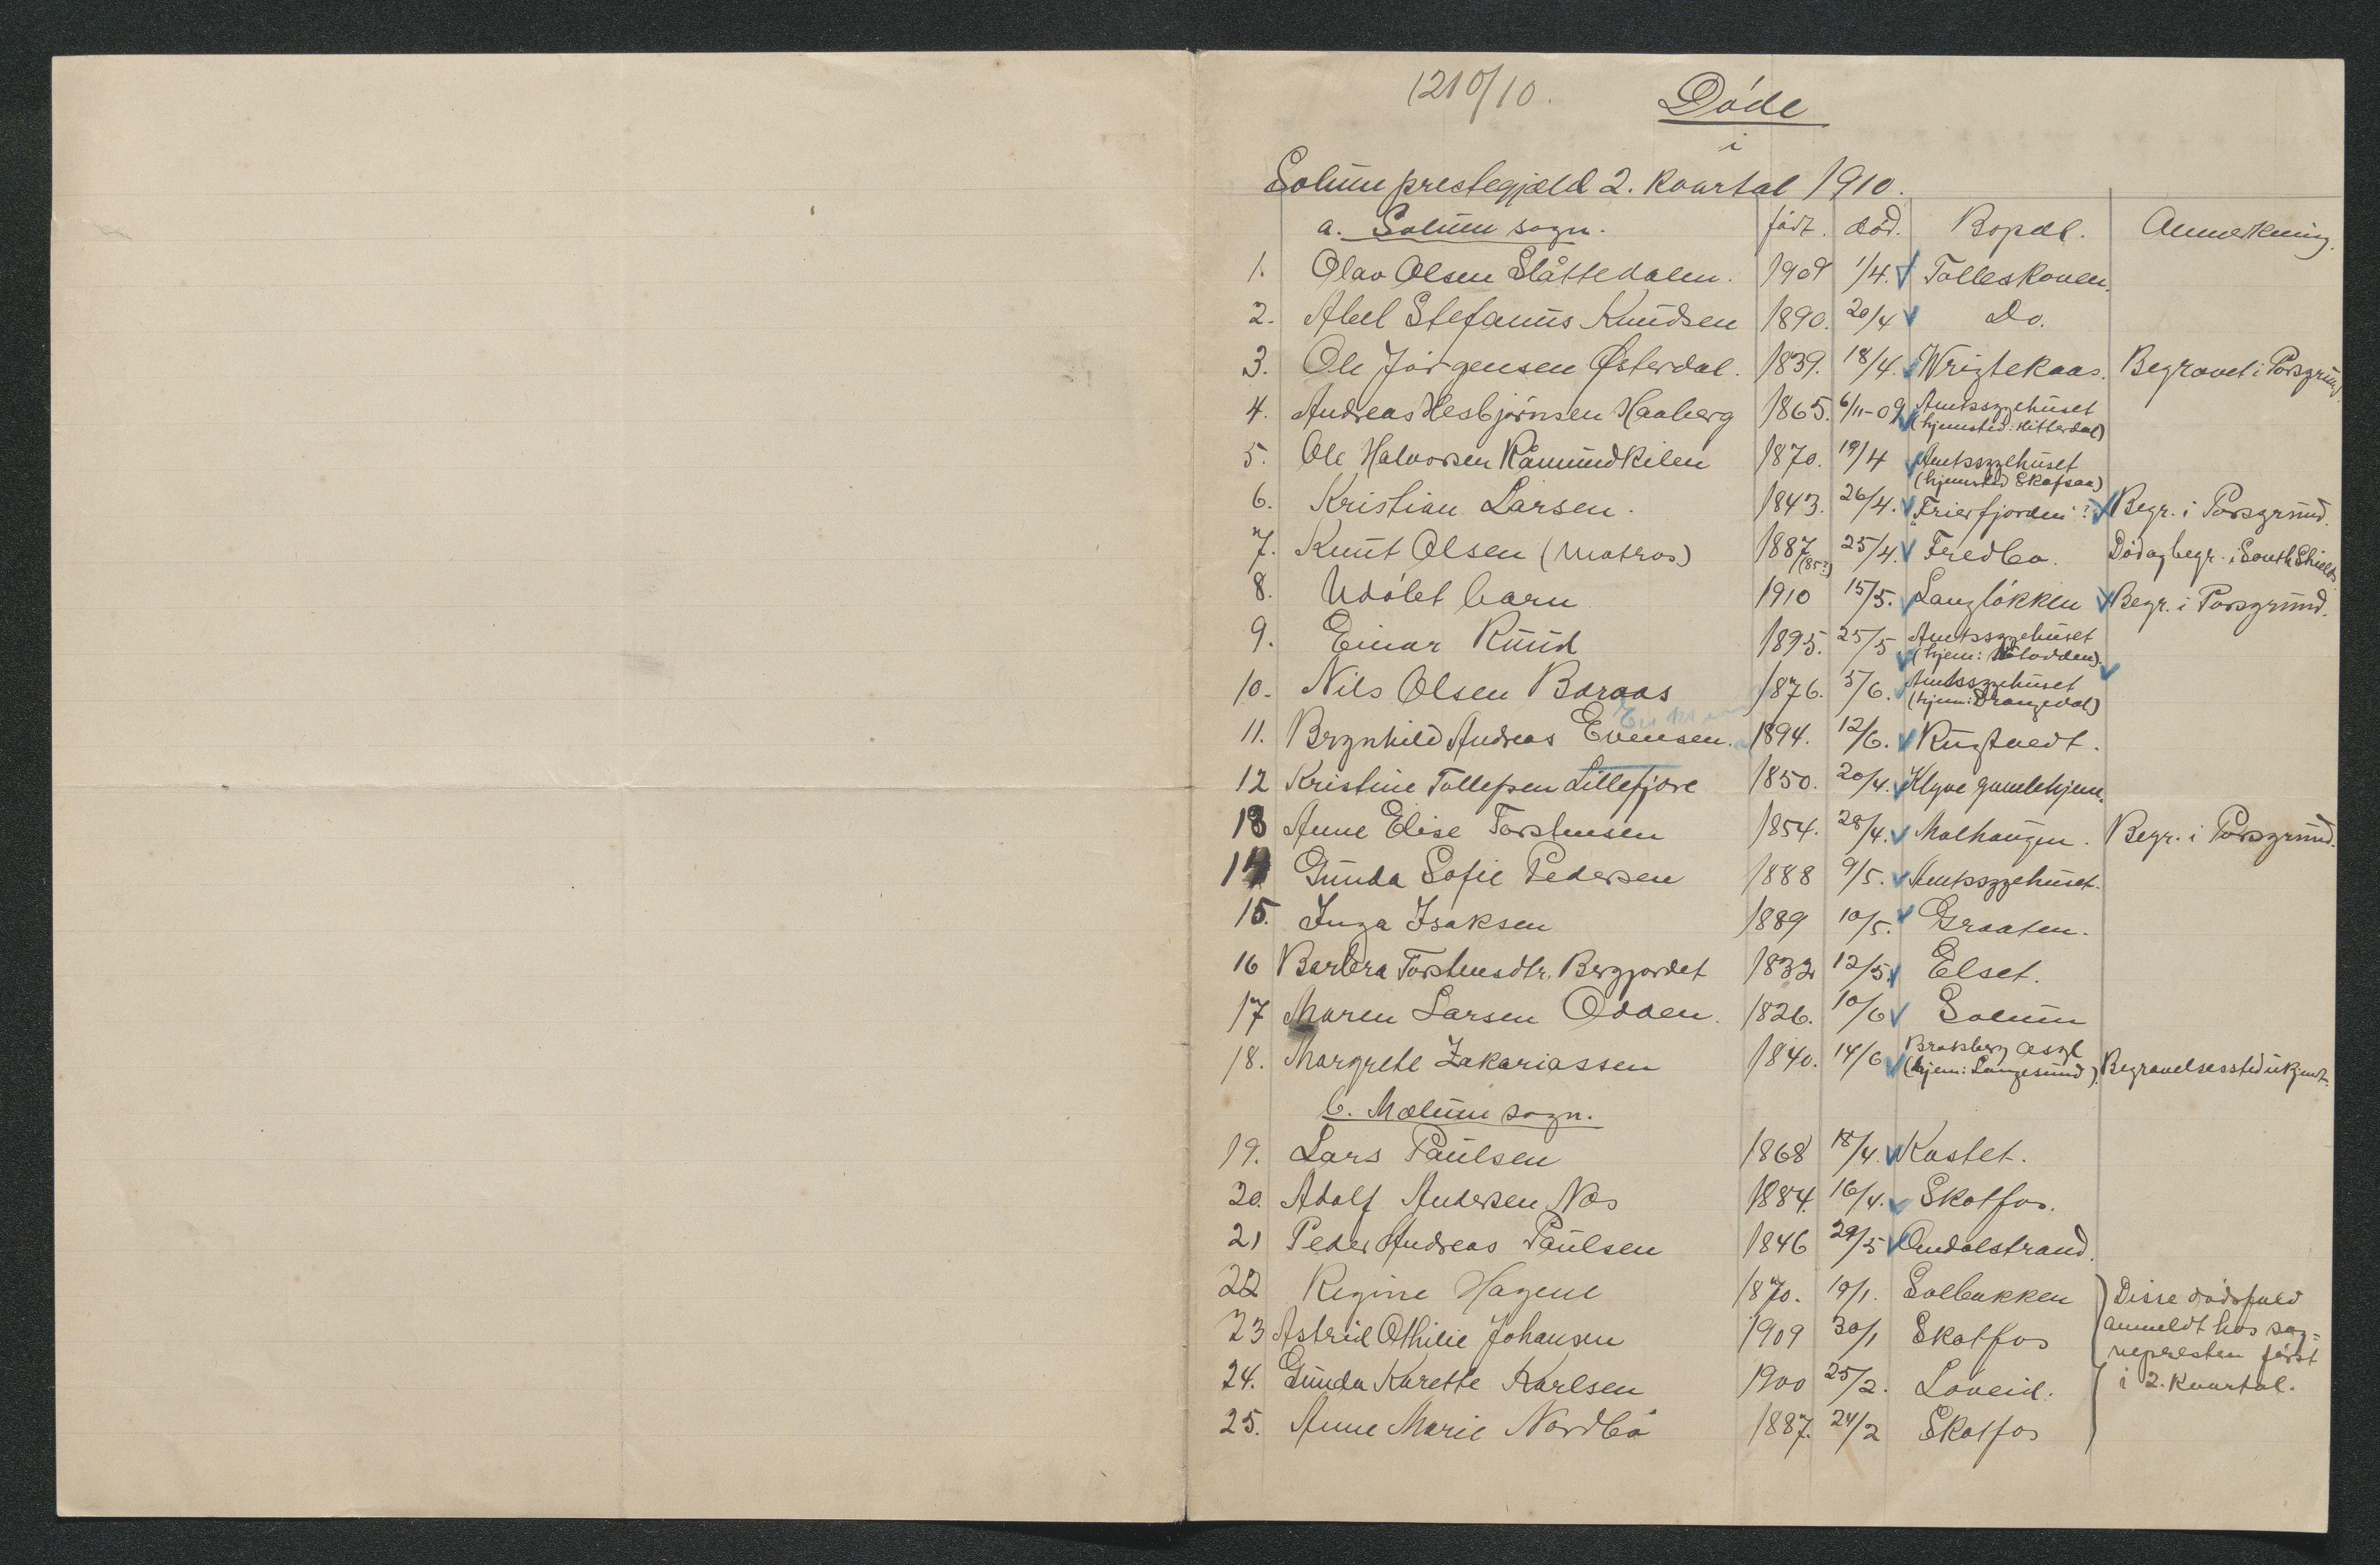 1210/10.
Döde
i
Solum prestegjæld 2. kvartal 1910.
a. Solum sogn. født. død. Bopæl. Anmerkning.
1. Olav Olsen Slåttedalen. 1909 1/4. Tolleskoven.
2. Abel Stefanus Knudsen 1890. 20/4 Do.
3. Ole Jörgensen Østerdal. 1839. 18/4. Wrigtekaas. Begravet i Porsgrund
4. Andreas Hesbjörnsen Haaberg 1865. 6/11-09 Amtssygehuset
(hjemsted: Hitterdal)
5. Ole Halvorsen Råmundkilen 1870. 19/4 Amtssygehuset
(hjemsted Skafsaa)
6. Kristian Larsen. 1843. 26/4. "Frierfjorden"? Begr. i Porsgrund.
7. Knut Olsen (matros) 1887 (85?) 25/4. Fredbo. Död og begr. i South Shields
8. Udöbt barn 1910 15/5. Langlökken Begr. i Porsgrund.
9. Einar Ruud 1895. 25/5 Amtssygehuset
(hjem: Notodden).
10. Nils Olsen Boraas 1876. 5/6. Amtssygehuset
(hjem: Drangedal)
11. Brynhild Andreas Evensen. 1894. 12/6. Rugtvedt.
12 Kristine Tollefsen Lillefjære 1850. 20/4. Klyve gamlehjem.
13 Anne Elise Torstensen 1854. 28/4. Malhaugen. Begr. i Porsgrund.
14 Gunda Sofie Pedersen 1888 9/5. Amtssygehuset.
15. Inga Isaksen 1889 10/5. Graaten.
16 Barbra Torstensdtr. Bergjordet 1832 12/5. Elset.
17 Maren Larsen Odden. 1826. 10/6 Solum
18. Margrete Zakariassen 1840. 14/6 Bratsberg asyl
(hjem: Langesund). Begravelsessted ukjent.
b. Mælum sogn.
19. Lars Paulsen 1868 18/4. Kastet.
20. Adolf Andersen Næs 1884. 16/4. Skotfos.
21 Peder Andreas Paulsen 1846 29/5 Omdalstrand.
22 Regine Hagene 1870. 19/1. Solbakken Disse dödsfald
anmeldt hos sog=
23 Astrid Othilie Johansen 1909 30/1 Skotfos nepresten först
24. Gunda Karette Karlsen 1900 25/2. Löveid. i 2. kvartal.
25. Anne Marie Nordbö 1887. 24/2 Skotfos